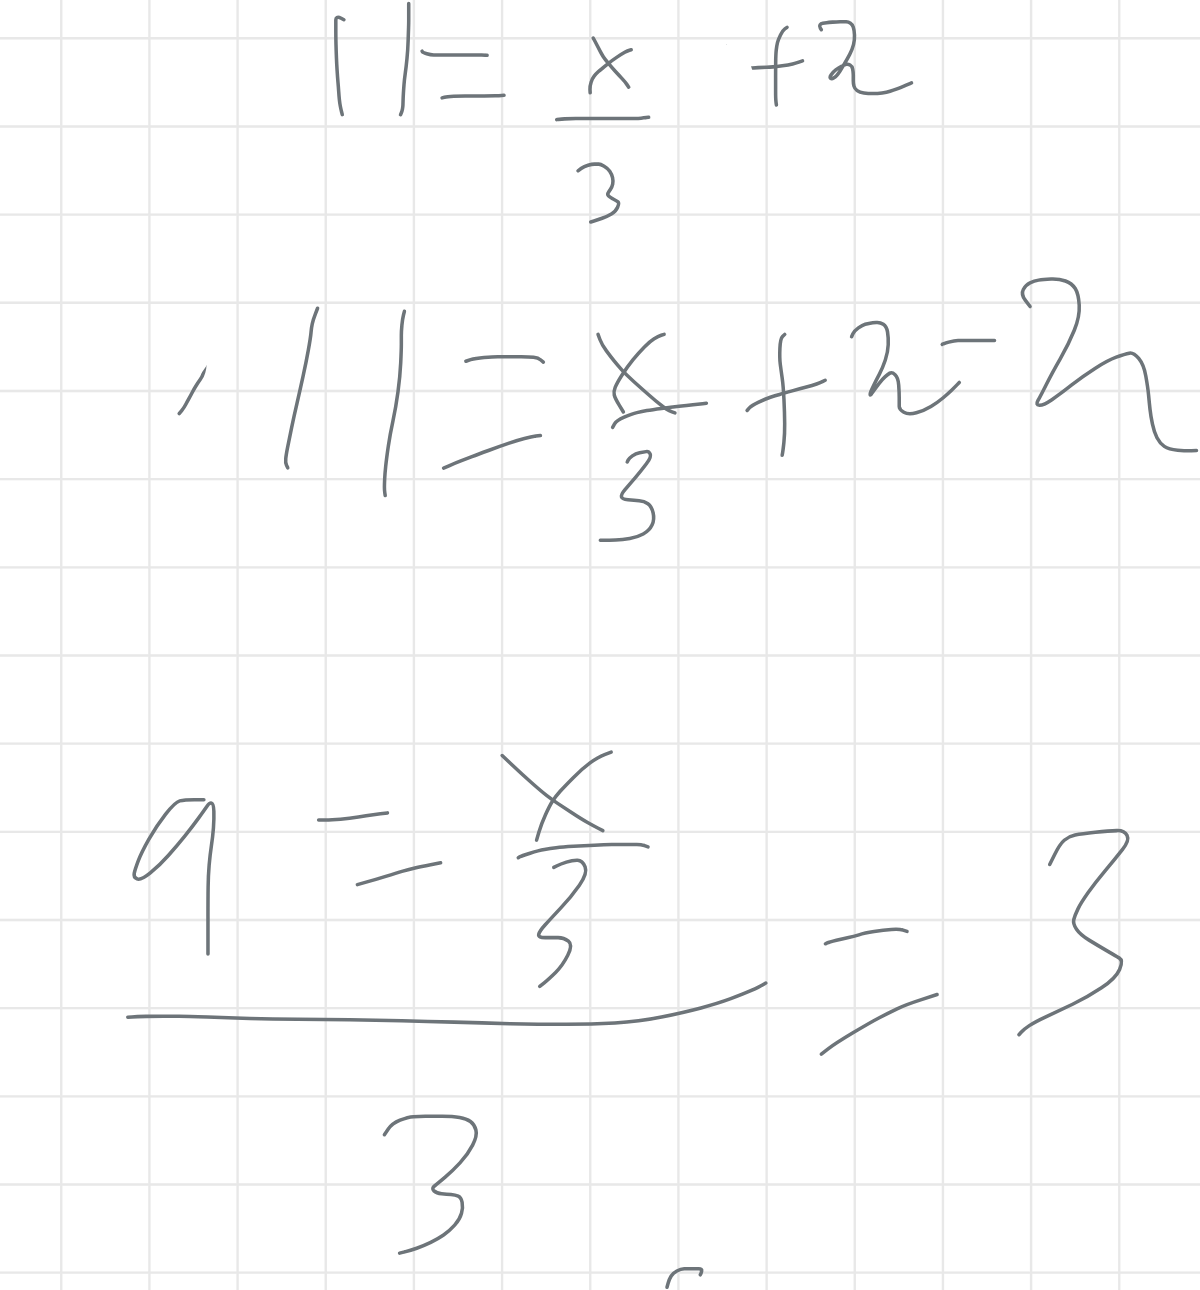 11 = x/3 + 2
11 = x/3 + 2 - 2
9 = x/3
/3 = 3